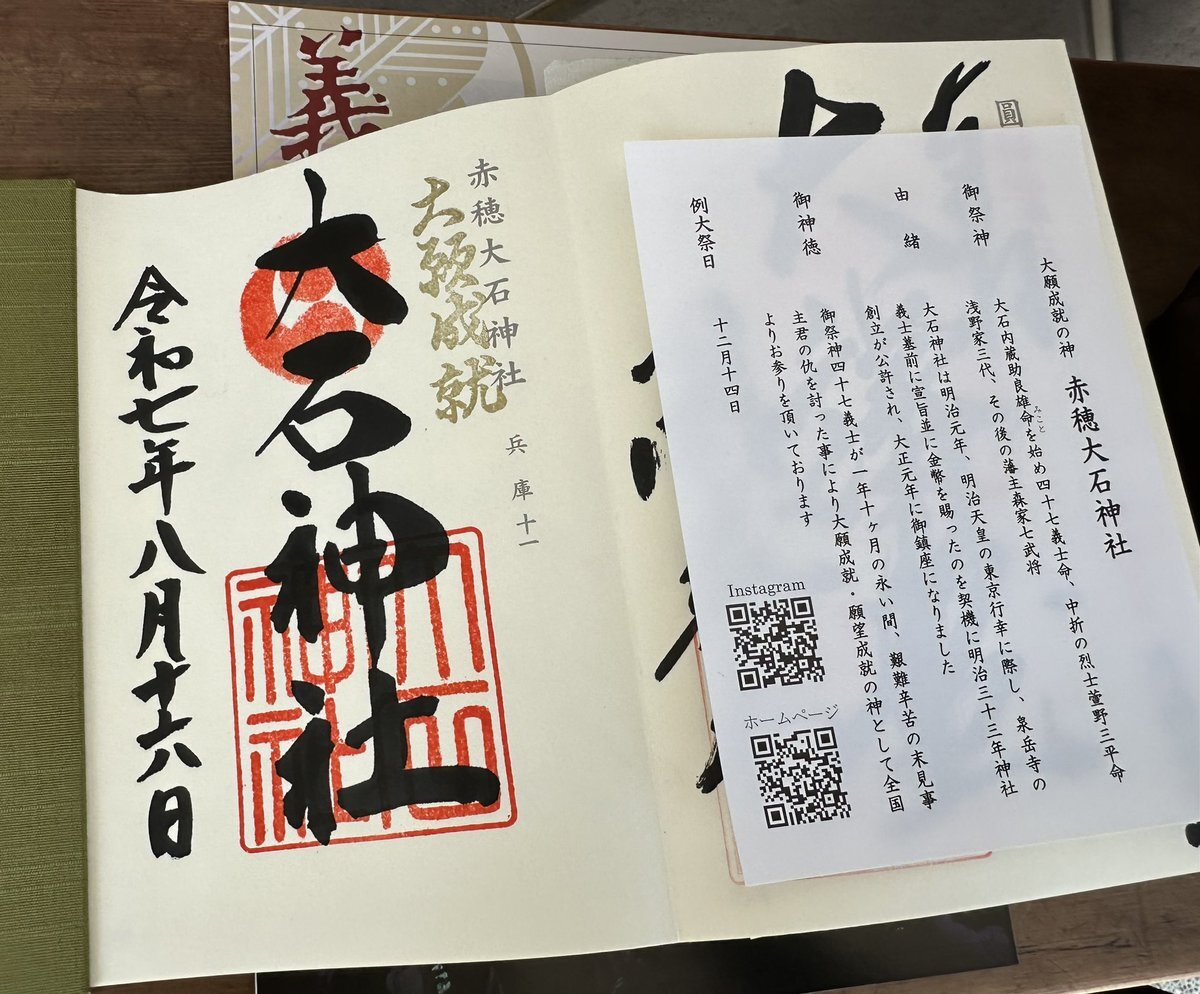 義
圓
赤穂大石神社 兵庫十一
大願成就
大石神社
令和七年八月十六日
大願成就の神 赤穂大石神社
御祭神 大石内蔵助良雄命を始め四十七義士命、中折の烈士萱野三平命
みこと
浅野家三代、その後の藩主森家七武将
由緒 大石神社は明治元年、明治天皇の東京行幸に際し、泉岳寺の
義士墓前に宣旨並に金幣を賜ったのを契機に明治三十三年神社
創立が公許され、大正元年に御鎮座になりました
御神徳 御祭神四十七義士が一年十ヶ月の永い間、艱難辛苦の末見事
主君の仇を討った事により大願成就・願望成就の神として全国
よりお参りを頂いております
例大祭日 十二月十四日
Instagram
ホームページ